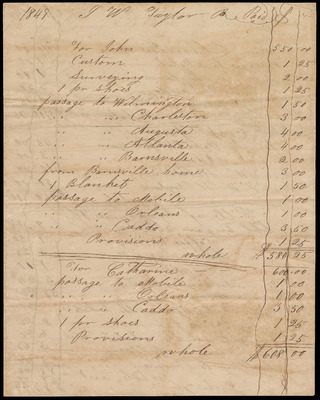 1849 J W Taylor Paid for
For John 550 00
Custom 1 25
Surveying 2 00
1 pr shoes 1 25
passage to Wilmington 1 50
" " Charleston 3 00
" " Augusta 4 00
" " Atlanta 4 00
" " Barnsville 2 00
from Barnsville home 3 00
1 Blanket 1 50
passage to Mobile 1 00
" " Orleans 1 00
" " Caddo 3 50
Provisions 1 25
whole $ 580 25
For Catharine 600 00
passage to Mobile 1 00
" " Orleans 1 00
" " Caddo 3 50
1 pr shoes 1 25
Provisions 1 25
whole $ 608 00